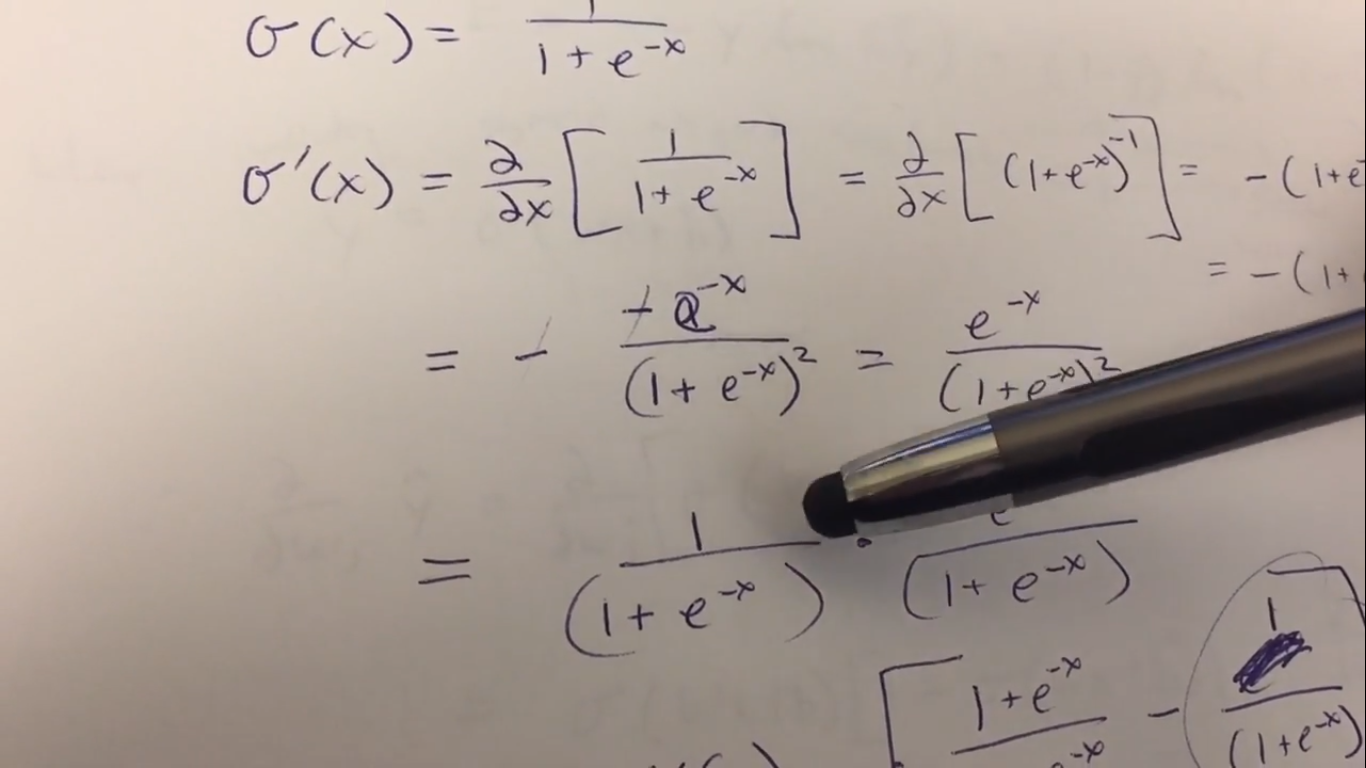 σ(x) = 1 / 1 + e^-x
σ'(x) = ∂/∂x [ 1 / 1 + e^-x ] = ∂/∂x [ (1+e^-x)^-1 ] = -(1+e
= -(1+
= - -e^-x / (1 + e^-x)^2 = e^-x / (1+e^-x)^2
= 1 / (1 + e^-x) · e / (1 + e^-x)
[ 1+e^-x / e^-x - 1 / (1+e^-x)